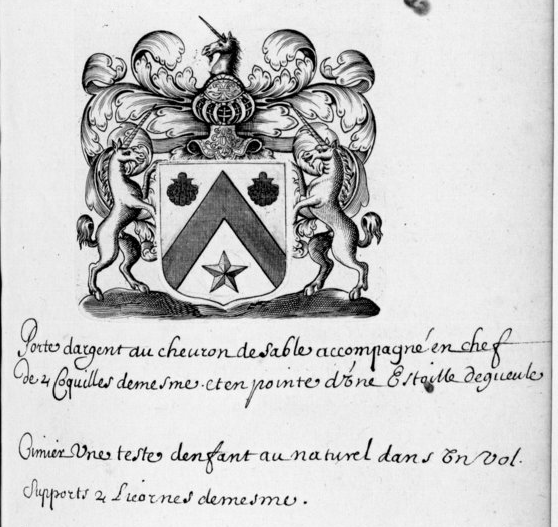 Porte dargent au cheuron de sable accompagné en chef
de 2 Coquilles demesme. et en pointe d'une Estoille degueule
Cimier Une teste denfant au naturel dans Un Vol.
Supports 2 Licornes demesme.